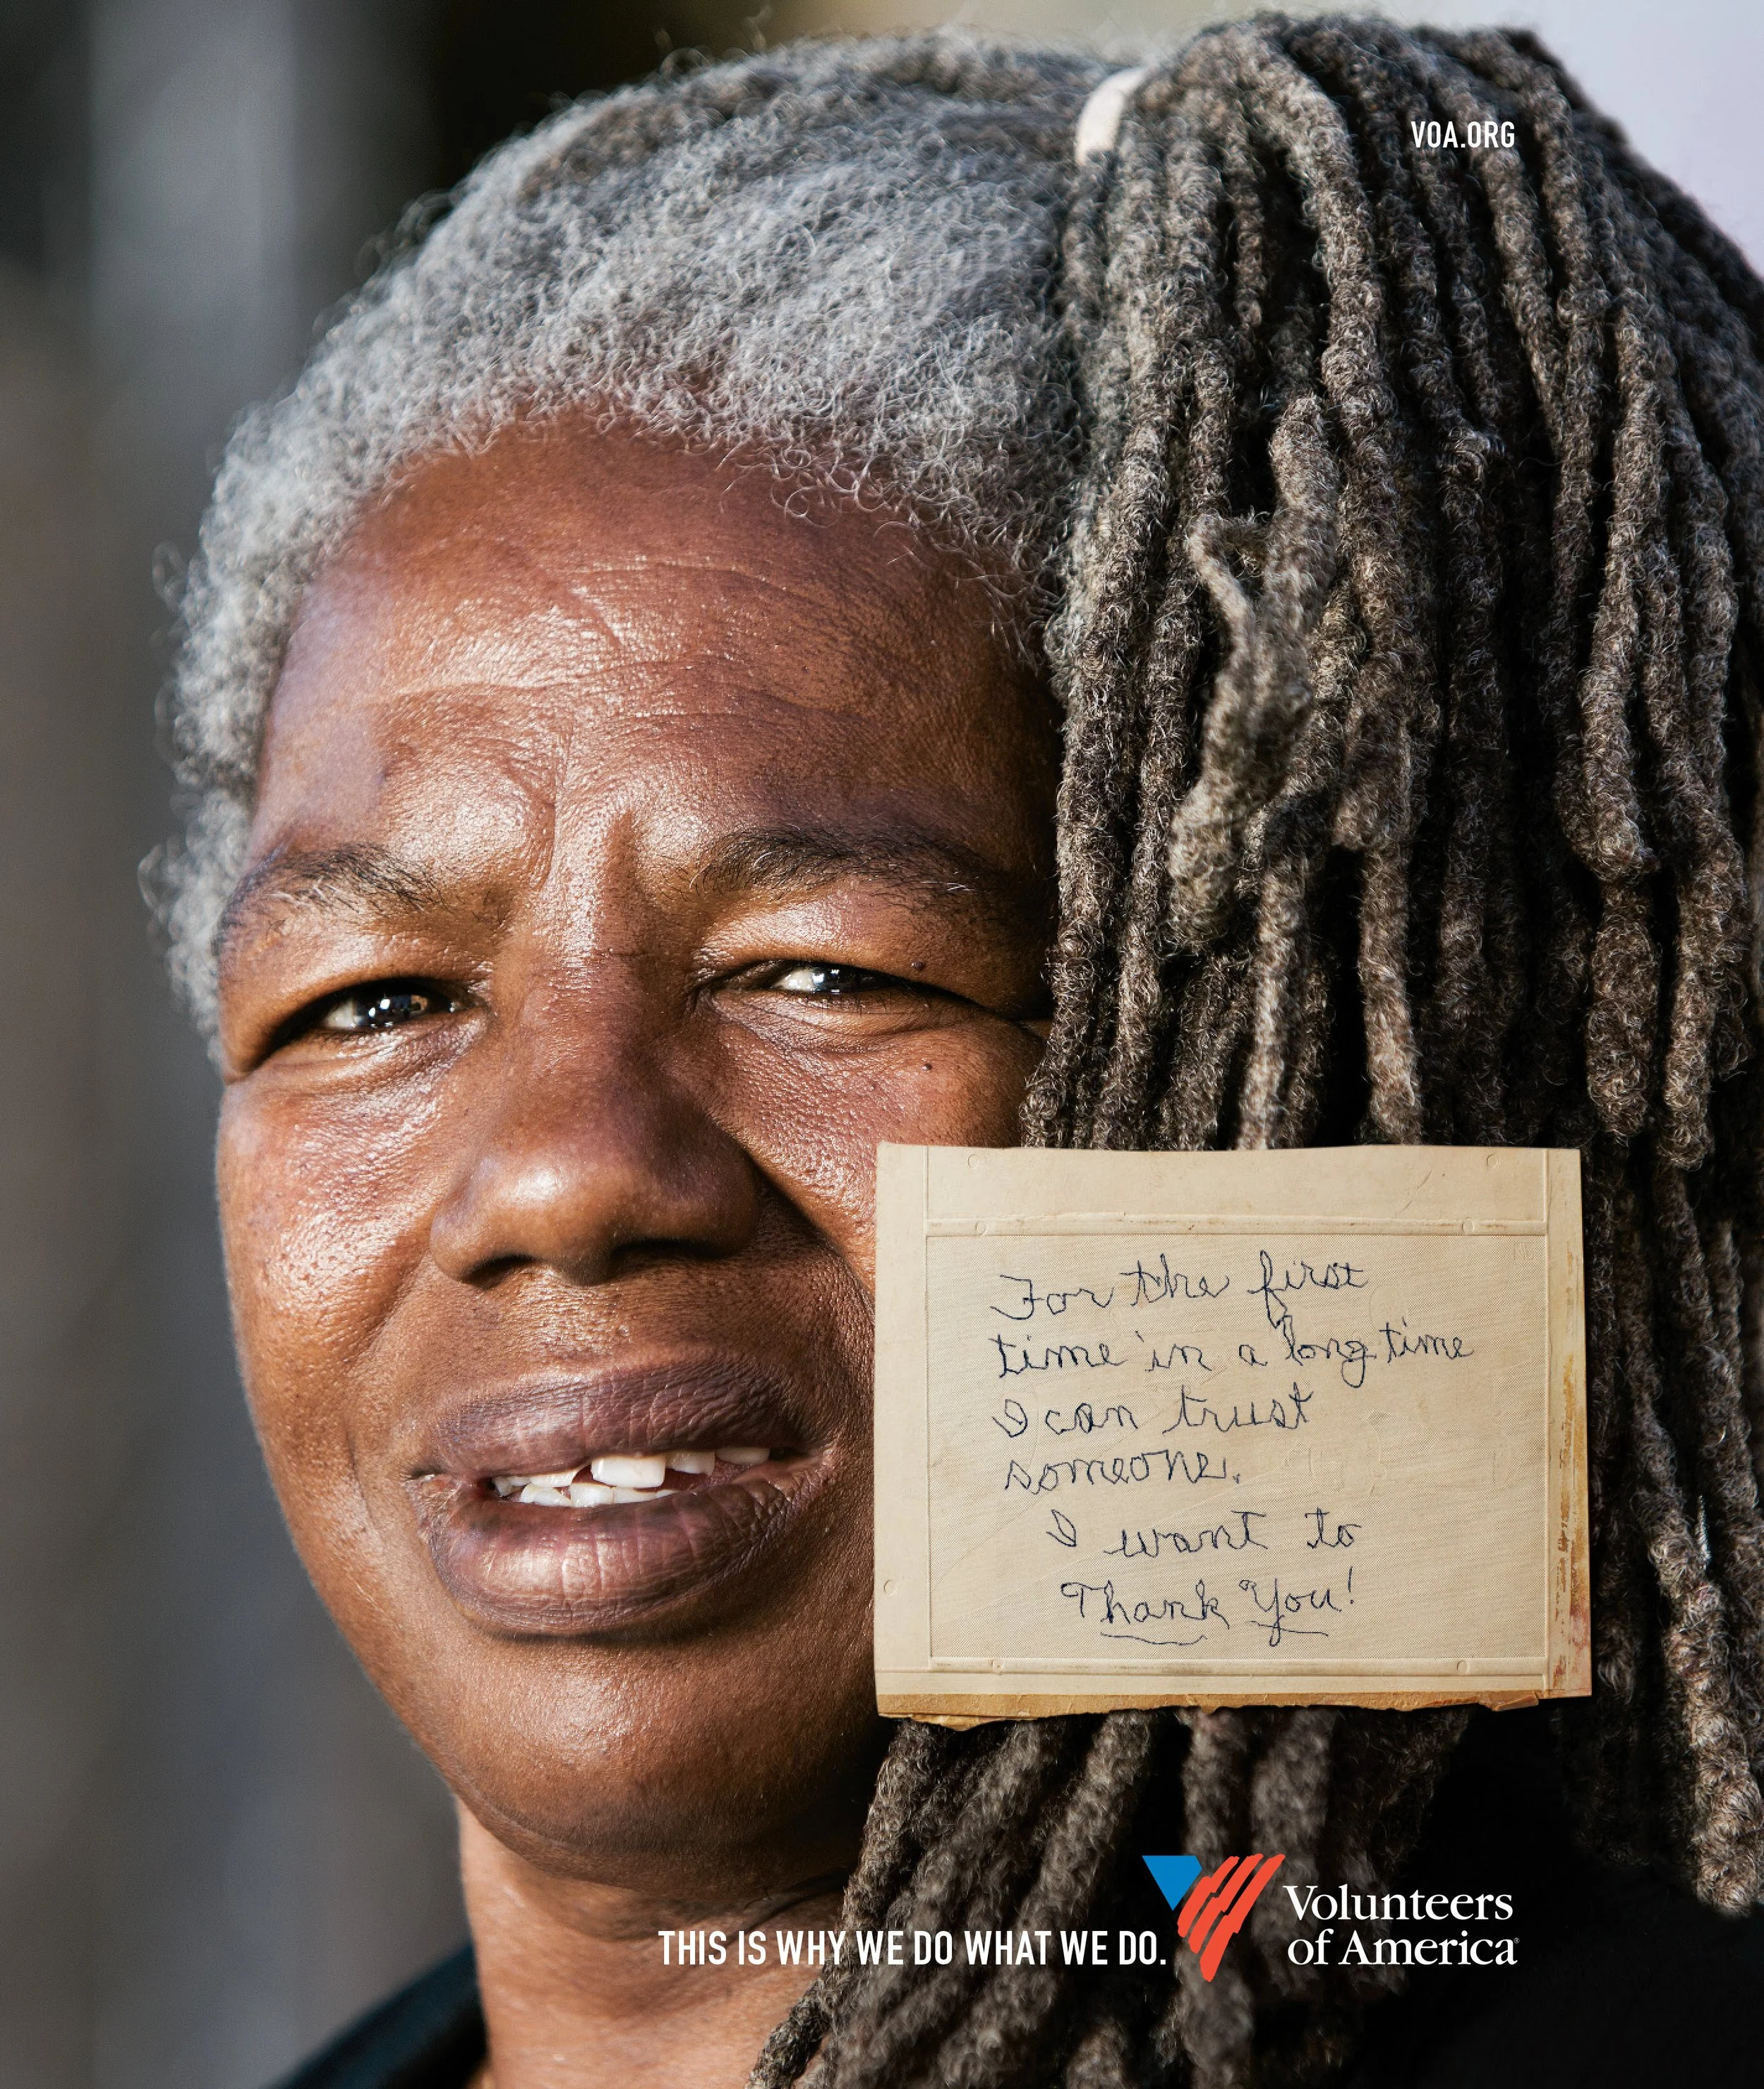 VOA.ORG
For the first
time in a long time
I can trust
someone.
I want to
Thank You!
THIS IS WHY WE DO WHAT WE DO.
Volunteers
of America®